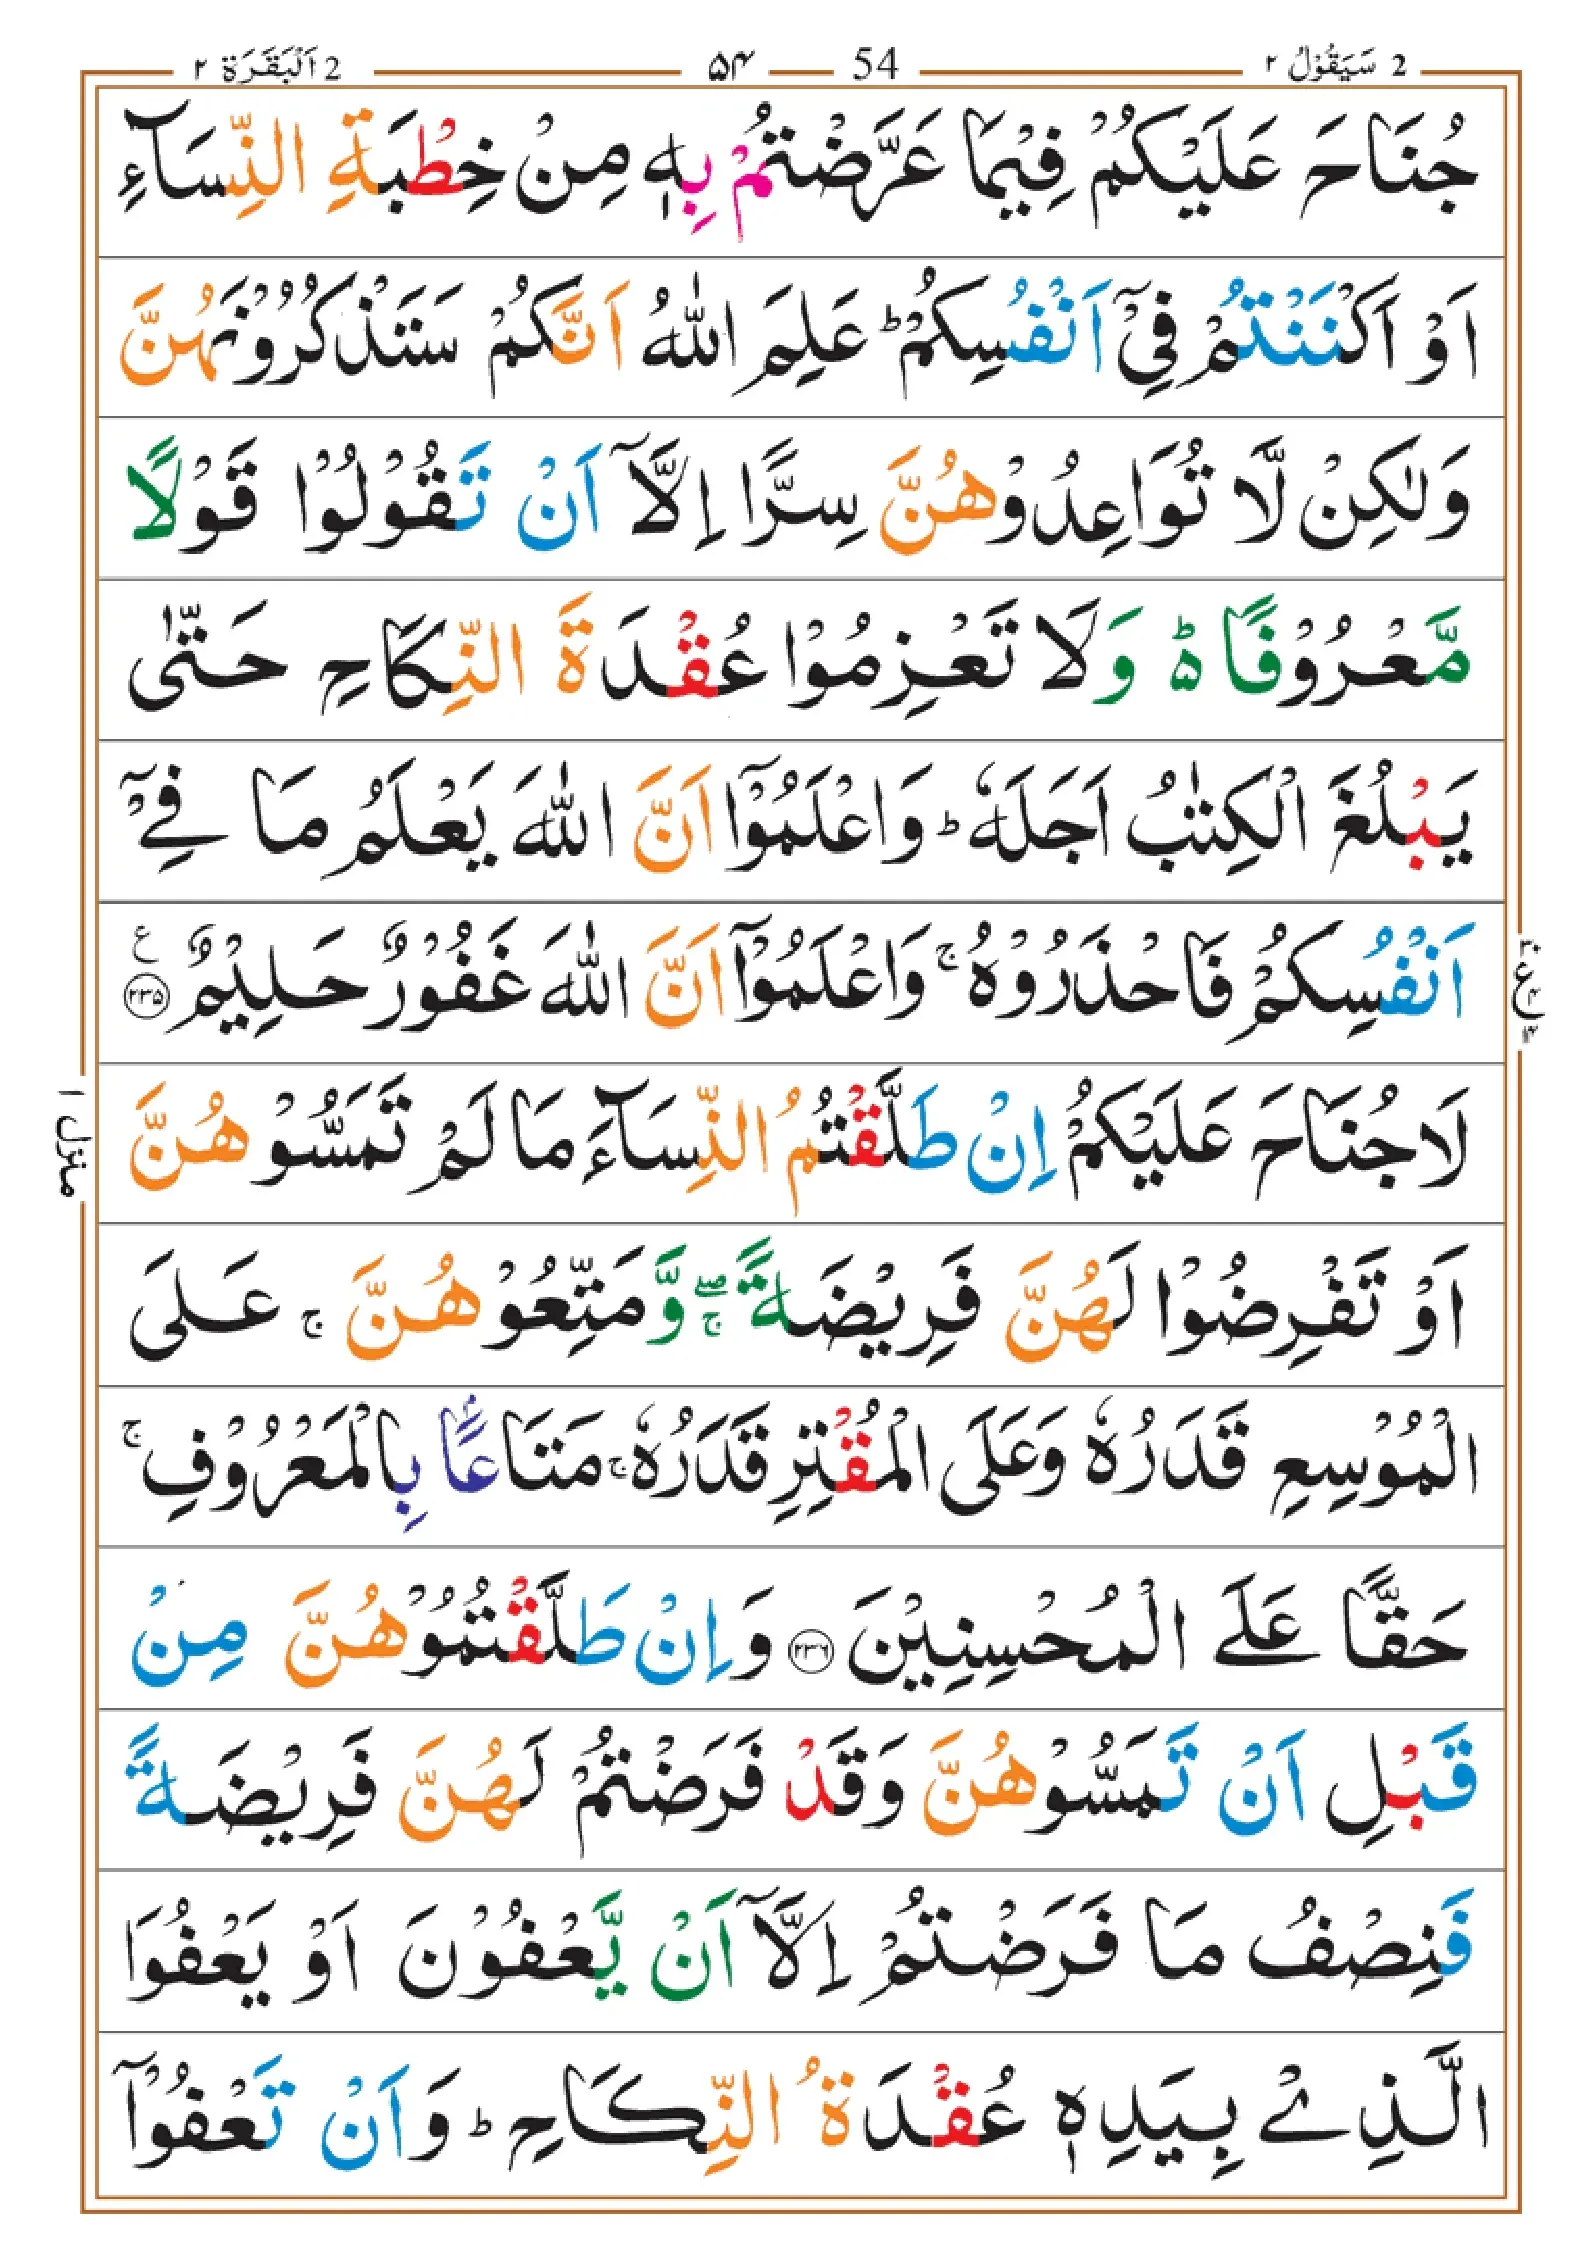 2 سَيَقُوْلُ ٢ 54 ۵۴ 2 اَلْبَقَرَة ٢
جُنَاحَ عَلَيْكُمْ فِيْمَا عَرَّضْتُمْ بِهٖ مِنْ خِطْبَةِ النِّسَآءِ
اَوْ اَكْنَنْتُمْ فِيْٓ اَنْفُسِكُمْ ؕ عَلِمَ اللّٰهُ اَنَّكُمْ سَتَذْكُرُوْنَهُنَّ
وَلٰكِنْ لَّا تُوَاعِدُوْهُنَّ سِرًّا اِلَّآ اَنْ تَقُوْلُوْا قَوْلًا
مَّعْرُوْفًا ۵ؕ وَلَا تَعْزِمُوْا عُقْدَةَ النِّكَاحِ حَتّٰى
يَبْلُغَ الْكِتٰبُ اَجَلَهٗ ؕ وَاعْلَمُوْٓا اَنَّ اللّٰهَ يَعْلَمُ مَا فِيْٓ
اَنْفُسِكُمْ فَاحْذَرُوْهُ ۚ وَاعْلَمُوْٓا اَنَّ اللّٰهَ غَفُوْرٌ حَلِيْمٌ ﴿۲۳۵﴾ ع
٣٠ ع ١۴
لَا جُنَاحَ عَلَيْكُمْ اِنْ طَلَّقْتُمُ النِّسَآءَ مَا لَمْ تَمَسُّوْهُنَّ
منزل ١
اَوْ تَفْرِضُوْا لَهُنَّ فَرِيْضَةً ۖۚ وَّمَتِّعُوْهُنَّ ۚ عَلَى
الْمُوْسِعِ قَدَرُهٗ وَعَلَى الْمُقْتِرِ قَدَرُهٗ ۚ مَتَاعًاۢ بِالْمَعْرُوْفِ ۚ
حَقًّا عَلَى الْمُحْسِنِيْنَ ﴿۲۳۶﴾ وَاِنْ طَلَّقْتُمُوْهُنَّ مِنْ
قَبْلِ اَنْ تَمَسُّوْهُنَّ وَقَدْ فَرَضْتُمْ لَهُنَّ فَرِيْضَةً
فَنِصْفُ مَا فَرَضْتُمْ اِلَّآ اَنْ يَّعْفُوْنَ اَوْ يَعْفُوَا
الَّذِيْ بِيَدِهٖ عُقْدَةُ النِّكَاحِ ؕ وَاَنْ تَعْفُوْٓا